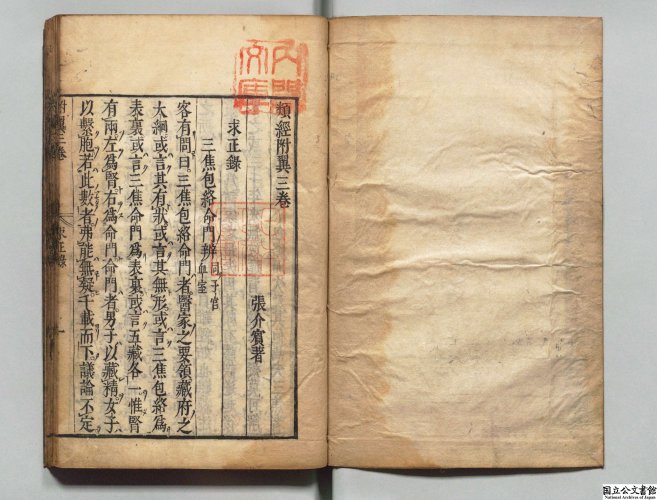 類經附翼三卷
張介賓著
求正錄
三焦包絡命門辨
客有問曰三焦包絡命門者醫家之要領藏府之
大綱或言其有狀或言其無形或言三焦包絡爲
表裏或言三焦命門爲表裏或言五藏各一惟腎
有兩左爲腎右爲命門命門者男子以藏精女子
以繫胞若此數者弗能無疑千載而下議論不定
附翼三卷
求正錄
一
內閣文庫
国立公文書館
National Archives of Japan